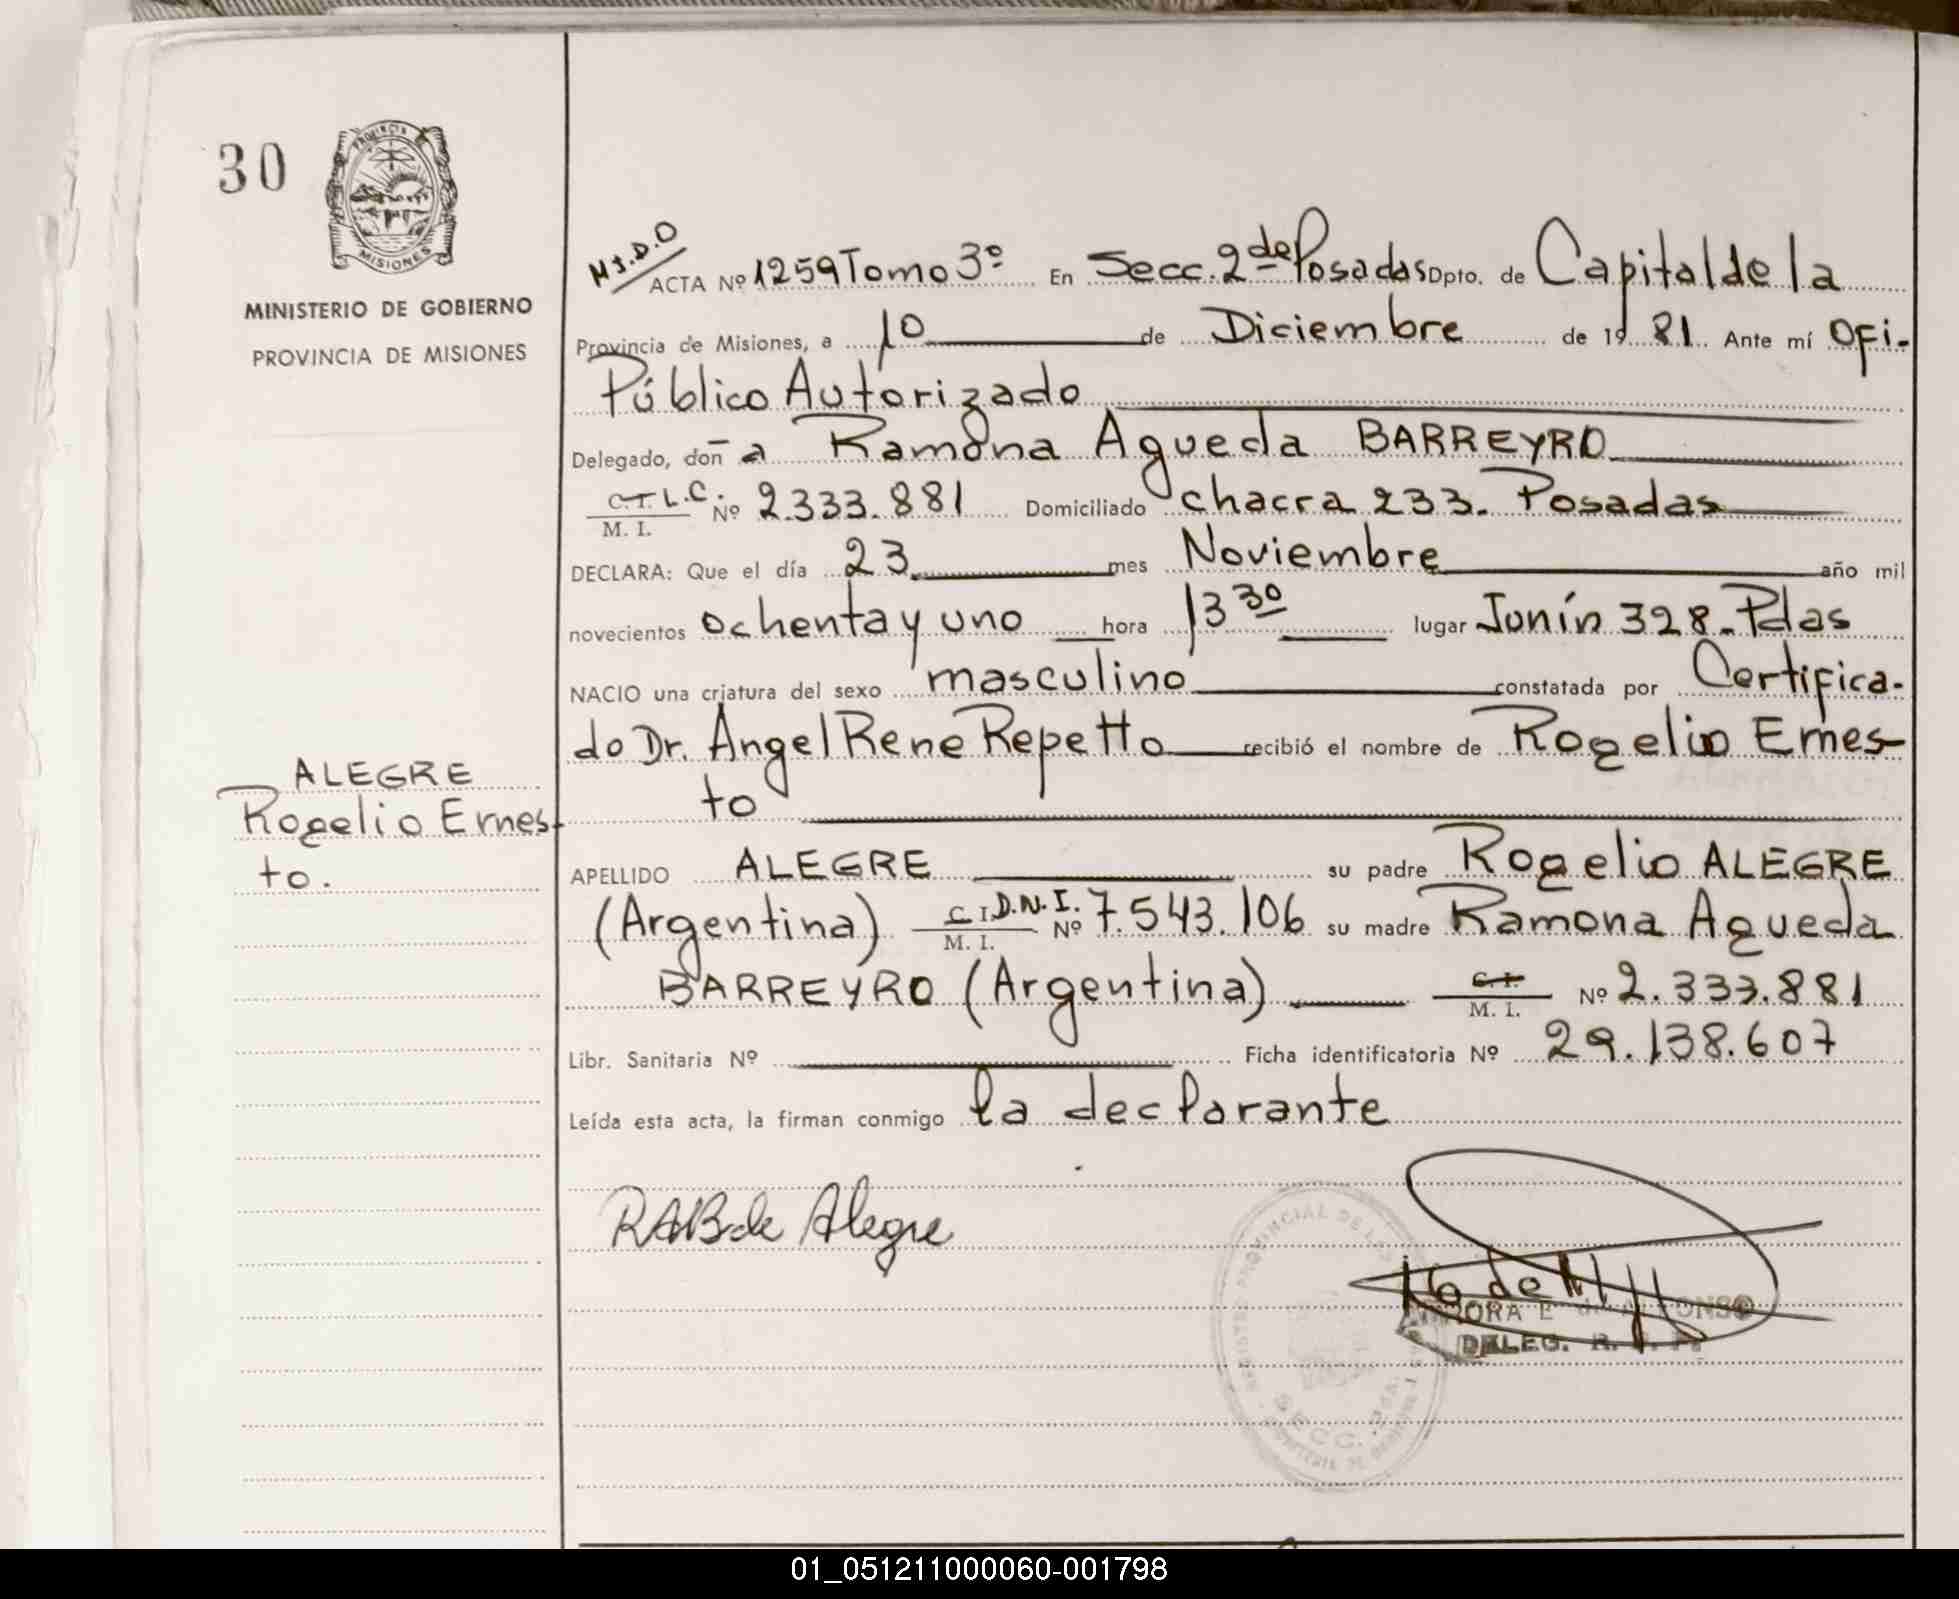 30
PROVINCIA
MISIONES
MINISTERIO DE GOBIERNO
PROVINCIA DE MISIONES
ALEGRE
Rogelio Ernes-
to.
M.I.D.O
ACTA Nº 1259 Tomo 3º En Secc. 2da Posadas Dpto. de Capital de la
Provincia de Misiones, a 10 de Diciembre de 1981 Ante mí Ofi-
Público Autorizado
Delegado, doñ a Ramona Agueda BARREYRO
C.I. L.C. M. I. Nº 2.333.881 Domiciliado chacra 233. Posadas
DECLARA: Que el día 23 mes Noviembre año mil
novecientos ochenta y uno hora 13 30 lugar Junín 328-Pdas
NACIO una criatura del sexo masculino constatada por Certifica-
do Dr. Angel Rene Repetto recibió el nombre de Rogelio Ernes-
to
APELLIDO ALEGRE su padre Rogelio ALEGRE
(Argentina) C I D.N.I. M. I. Nº 7.543.106 su madre Ramona Agueda
BARREYRO (Argentina) C. I. M. I. Nº 2.333.881
Libr. Sanitaria Nº Ficha identificatoria Nº 29.138.607
Leída esta acta, la firman conmigo la declarante
RAB de Alegre
DELEG. R. P.
SECC. 2da.
01_051211000060-001798